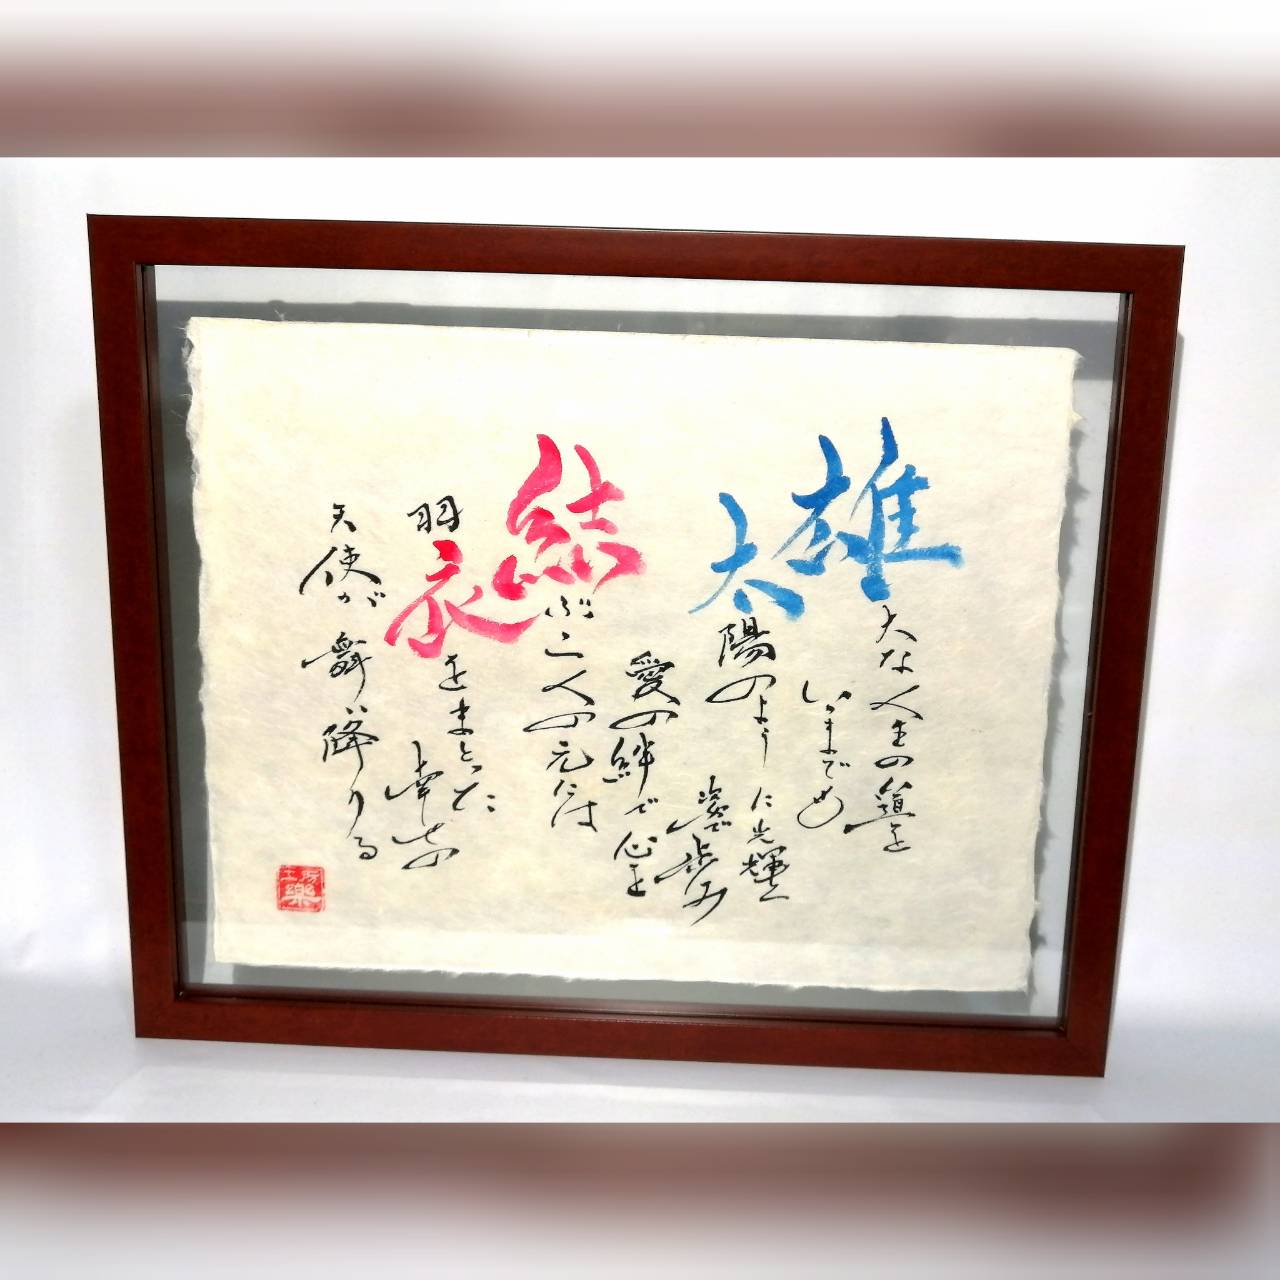 雄大な人生の道を
いつまでも
太陽のように光輝く
姿で歩み
愛の絆で心を
結ぶ二人の元には
羽衣をまとった
幸せの
天使が舞い降りる